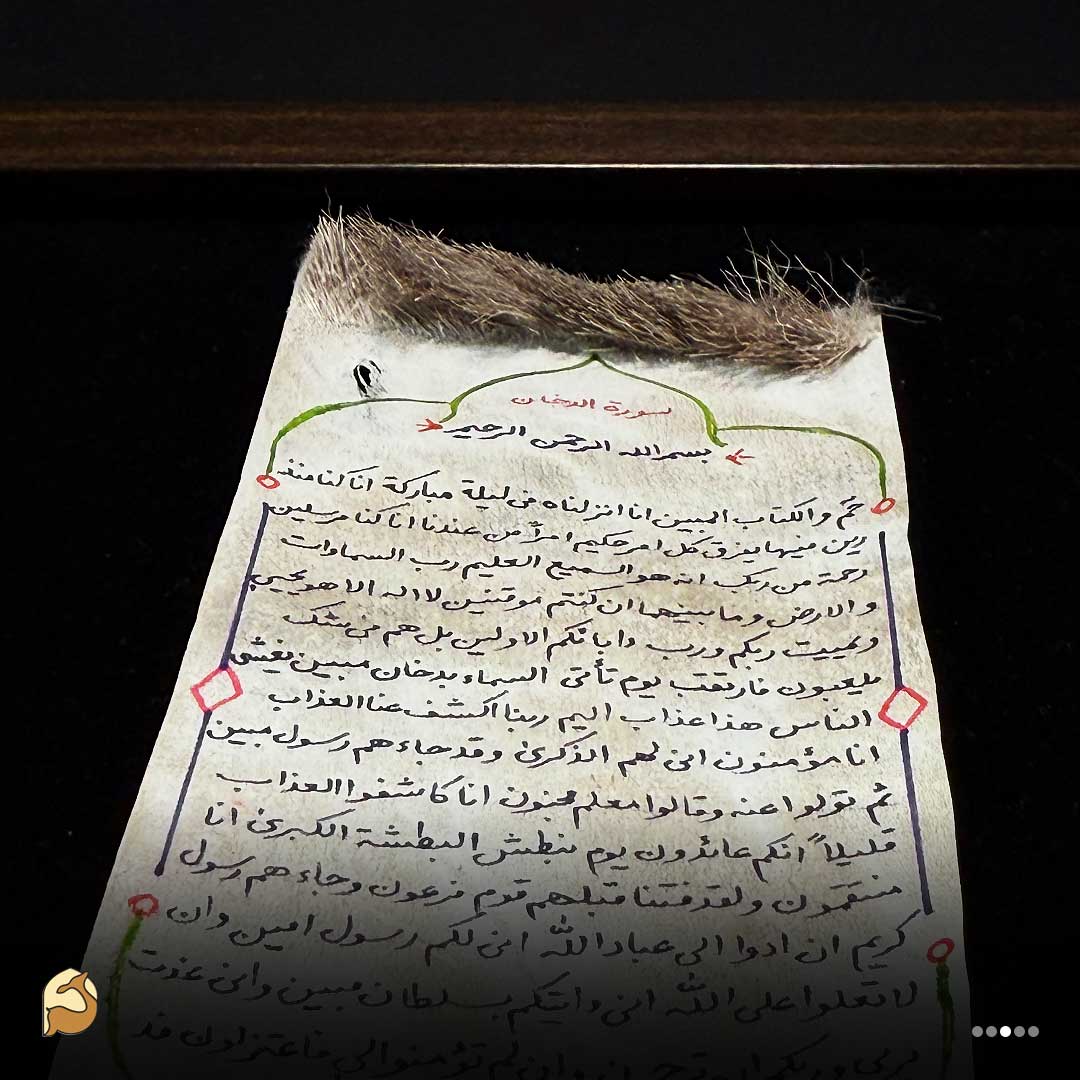 سورة الدخان
بسم الله الرحمن الرحيم
حٓم والكتاب المبين انا انزلناه فى ليلة مباركة انا كنا منذ
رين فيها يفرق كل امر حكيم امراً من عندنا انا كنا مرسلين
رحمة من ربك انه هو السميع العليم رب السماوات
والارض وما بينهما ان كنتم موقنين لا اله الا هو يحيي
ويميت ربكم ورب وابائكم الاولين بل هم في شك
يلعبون فارتقب يوم تأتى السماء بدخان مبين يغشى
الناس هذا عذاب اليم ربنا اكشف عنا العذاب
انا مؤمنون انى لهم الذكرىٰ وقد جاءهم رسول مبين
ثم تولوا عنه وقالوا معلم مجنون انا كاشفوا العذاب
قليلاً انكم عائدون يوم نبطش البطشة الكبرىٰ انا
منتقمون ولقد فتنا قبلهم قوم فرعون وجاءهم رسول
كريم ان ادوا الى عباد اللّٰه انى لكم رسول امين وان
لا تعلوا على اللّٰه انى واتيكم بسلطان مبين وانى عذت
بربى وربكم ان وان لم تؤمنوا لى فاعتزلون